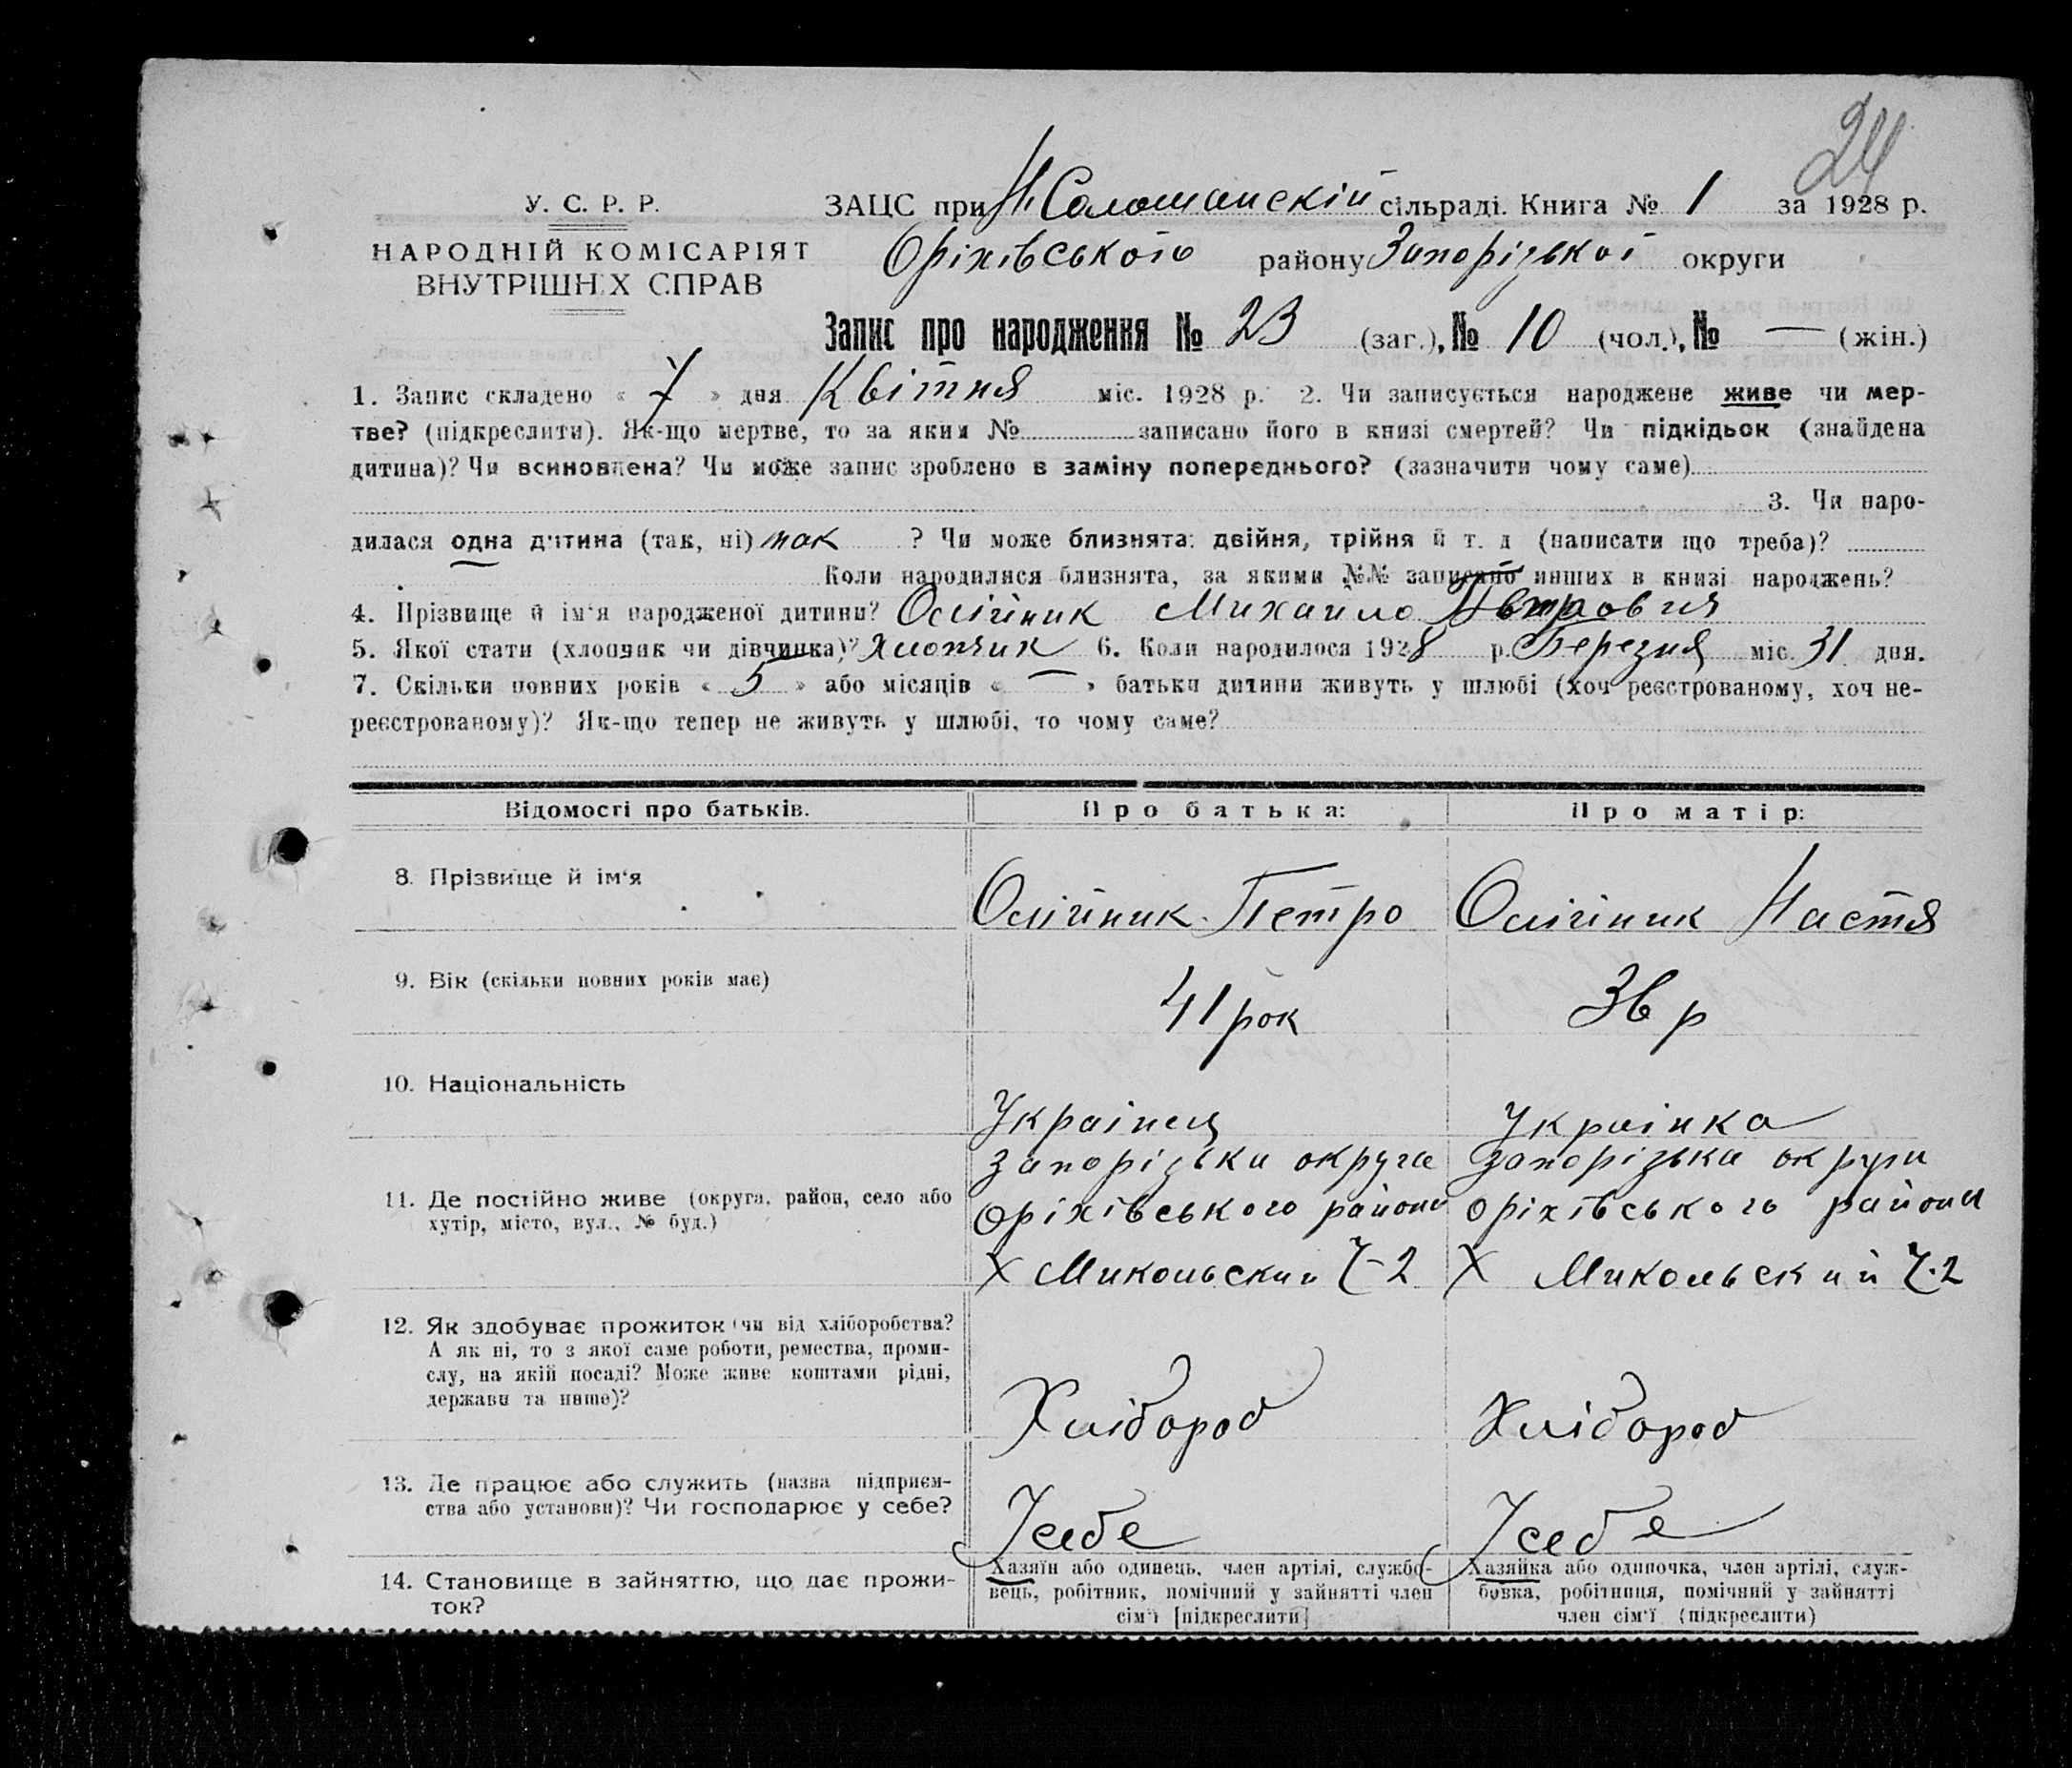 24
У. С. Р. Р.
НАРОДНІЙ КОМІСАРІЯТ
ВНУТРІШНІХ СПРАВ
ЗАЦС при Н. Соломанскій сільраді. Книга № 1 за 1928 р.
Оріхівського району Запорізької округи
Запис про народження № 23 (заг.), № 10 (чол.), № — (жін.)
1. Запис складено « 7 » дня Квітня міс. 1928 р. 2. Чи записується народжене живе чи мер-
тве? (підкреслити). Як-що мертве, то за яким № записано його в книзі смертей? Чи підкідьок (знайдена
дитина)? Чи всиновлена? Чи може запис зроблено в заміну попереднього? (зазначити чому саме)
3. Чи наро-
дилася одна дитина (так, ні) так ? Чи може близнята: двійня, трійня й т. д (написати що треба)?
Коли народилися близнята, за якими №№ записано инших в книзі народжень?
4. Прізвище й ім'я народженої дитини? Олійник Михайло Петрович
5. Якої стати (хлопчик чи дівчинка)? Хлопчик 6. Коли народилося 1928 р. Березня міс. 31 дня.
7. Скільки повних років « 5 » або місяців « — » батьки дитини живуть у шлюбі (хоч реєстрованому, хоч не-
реєстрованому)? Як-що тепер не живуть у шлюбі, то чому саме?
Відомості про батьків. Про батька: Про матір:
8. Прізвище й ім'я Олійник Петро Олійник Настя
9. Вік (скільки повних років має) 41 рок 36 р
10. Національність Українец Українка
11. Де постійно живе (округа, район, село або
хутір, місто, вул., № буд.)
Запорізька округа Запорізька округи
Оріхівського района Оріхівського района
Х Микольский Ч-2 Х Микольский Ч.2
12. Як здобуває прожиток (чи від хліборобства?
А як ні, то з якої саме роботи, ремества, проми-
слу, на якій посаді? Може живе коштами рідні,
держави та инше)?
Хлібороб Хлібороб
13. Де працює або служить (назва підприєм-
ства або установи)? Чи господарює у себе?
Усебе Усебе
14. Становище в зайняттю, що дає прожи-
ток?
Хазяїн або одинець, член артілі, службо-
вець, робітник, помічний у зайнятті член
сім'ї [підкреслити]
Хазяйка або одиночка, член артілі, служ-
бовка, робітниця, помічний у зайнятті
член сім'ї (підкреслити)